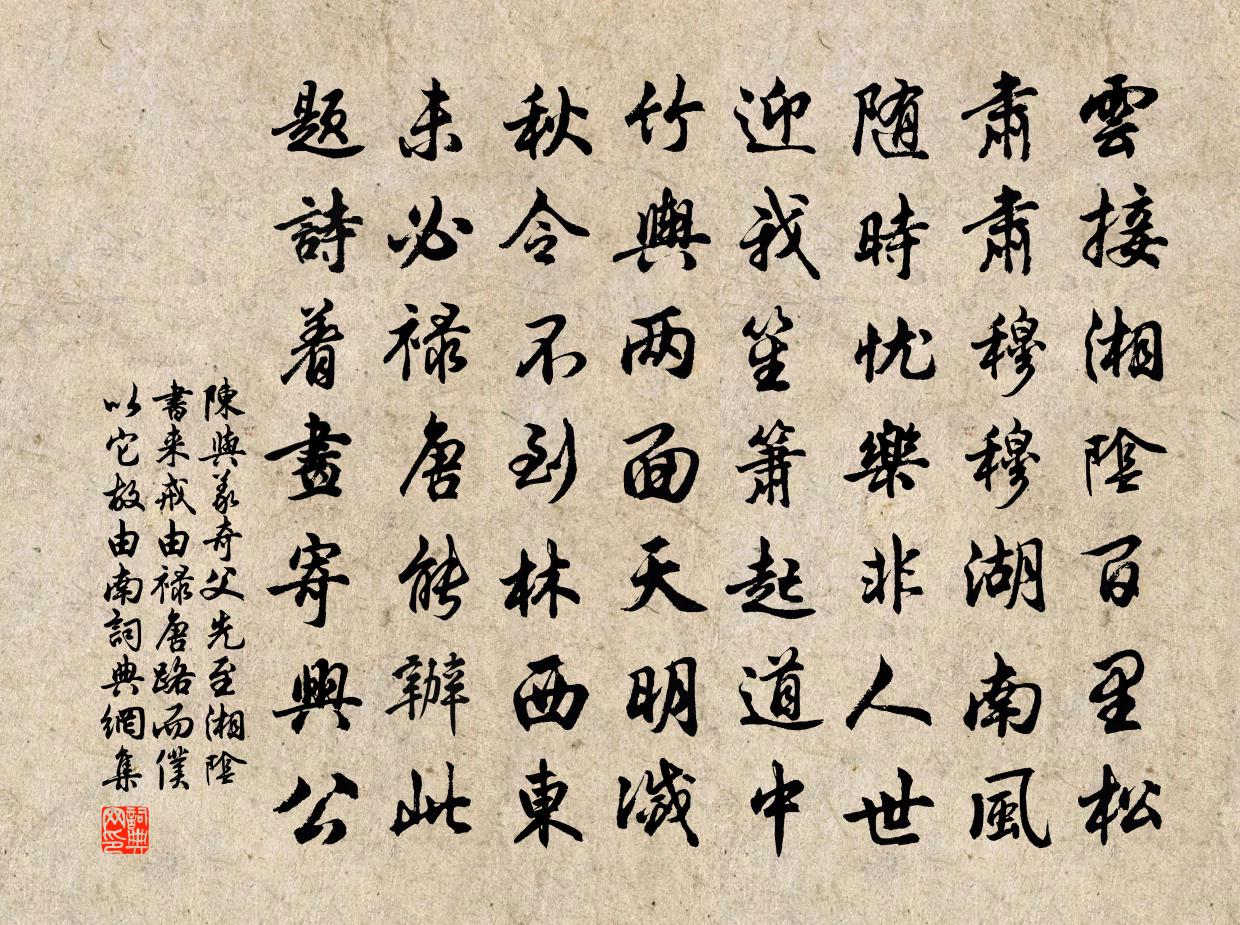 雲接湘陰百里松
肅肅穆穆湖南風
随時忧樂非人世
迎我笙箫起道中
竹輿两面天明滅
秋令不到林西東
未必禄唐能辦此
题詩着畫寄興公
陳與義奇父先至湘陰
書来戒由禄唐路而僕
以它故由南詞典網集
詞典网印